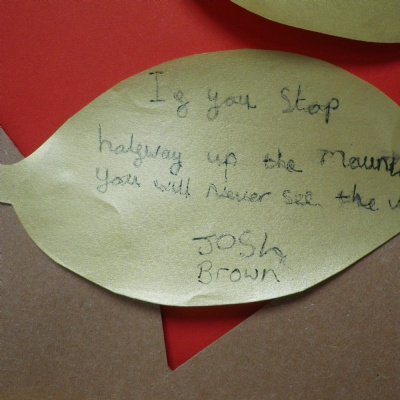 If you Stop
halfway up the Mount
You will Never see the v
JOSh
Brown